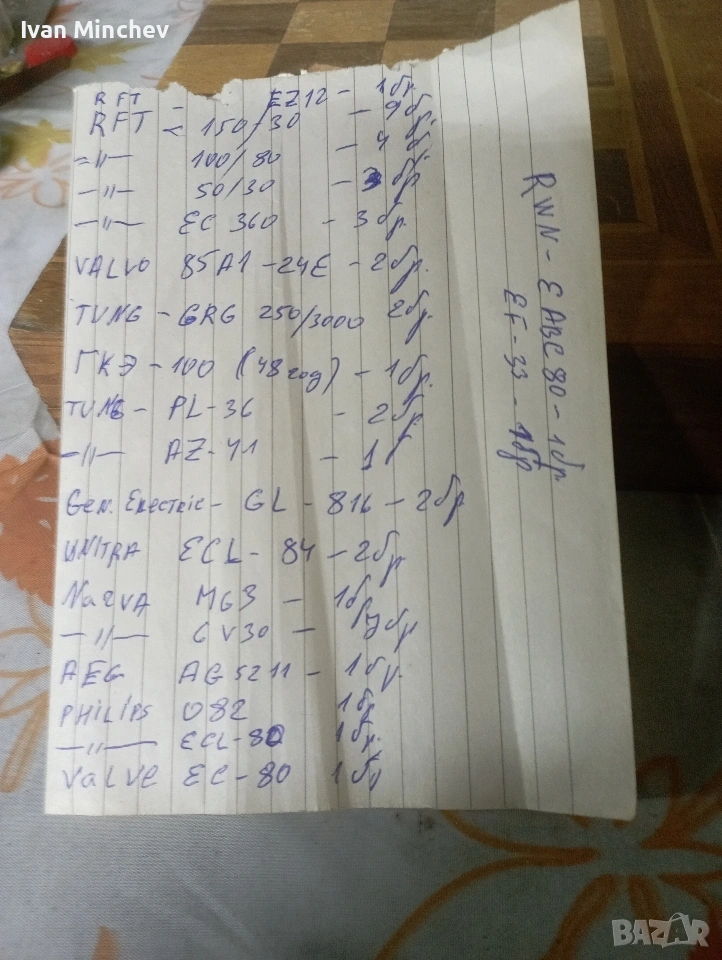 Ivan Minchev
RFT - EZ12 - 1бр.
RFT - 150/30 - 9бр
-"- 100/80 - 4бр
-"- 50/30 - 3бр
-"- EC 360 - 3бр
VALVO 85A1 - 24E - 2бр.
TUNG - GRG 250/3000 2бр
ГКЭ - 100 (48год) - 1бр.
TUNG - PL - 36 - 2бр
-"- AZ - 41 - 1
Gen. Electric - GL - 816 - 2бр
UNITRA ECL - 84 - 2бр
Narva MG3 - 1бр
-"- GV30 - бр
AEG AG 5211 - 1бр.
PHILIPS 082 1бр
-"- ECL - 82 1бр.
VaLVe EC - 80 1бр
RWN - EABC 80 - 1бр
EF - 33 - 1бр
BAZAR